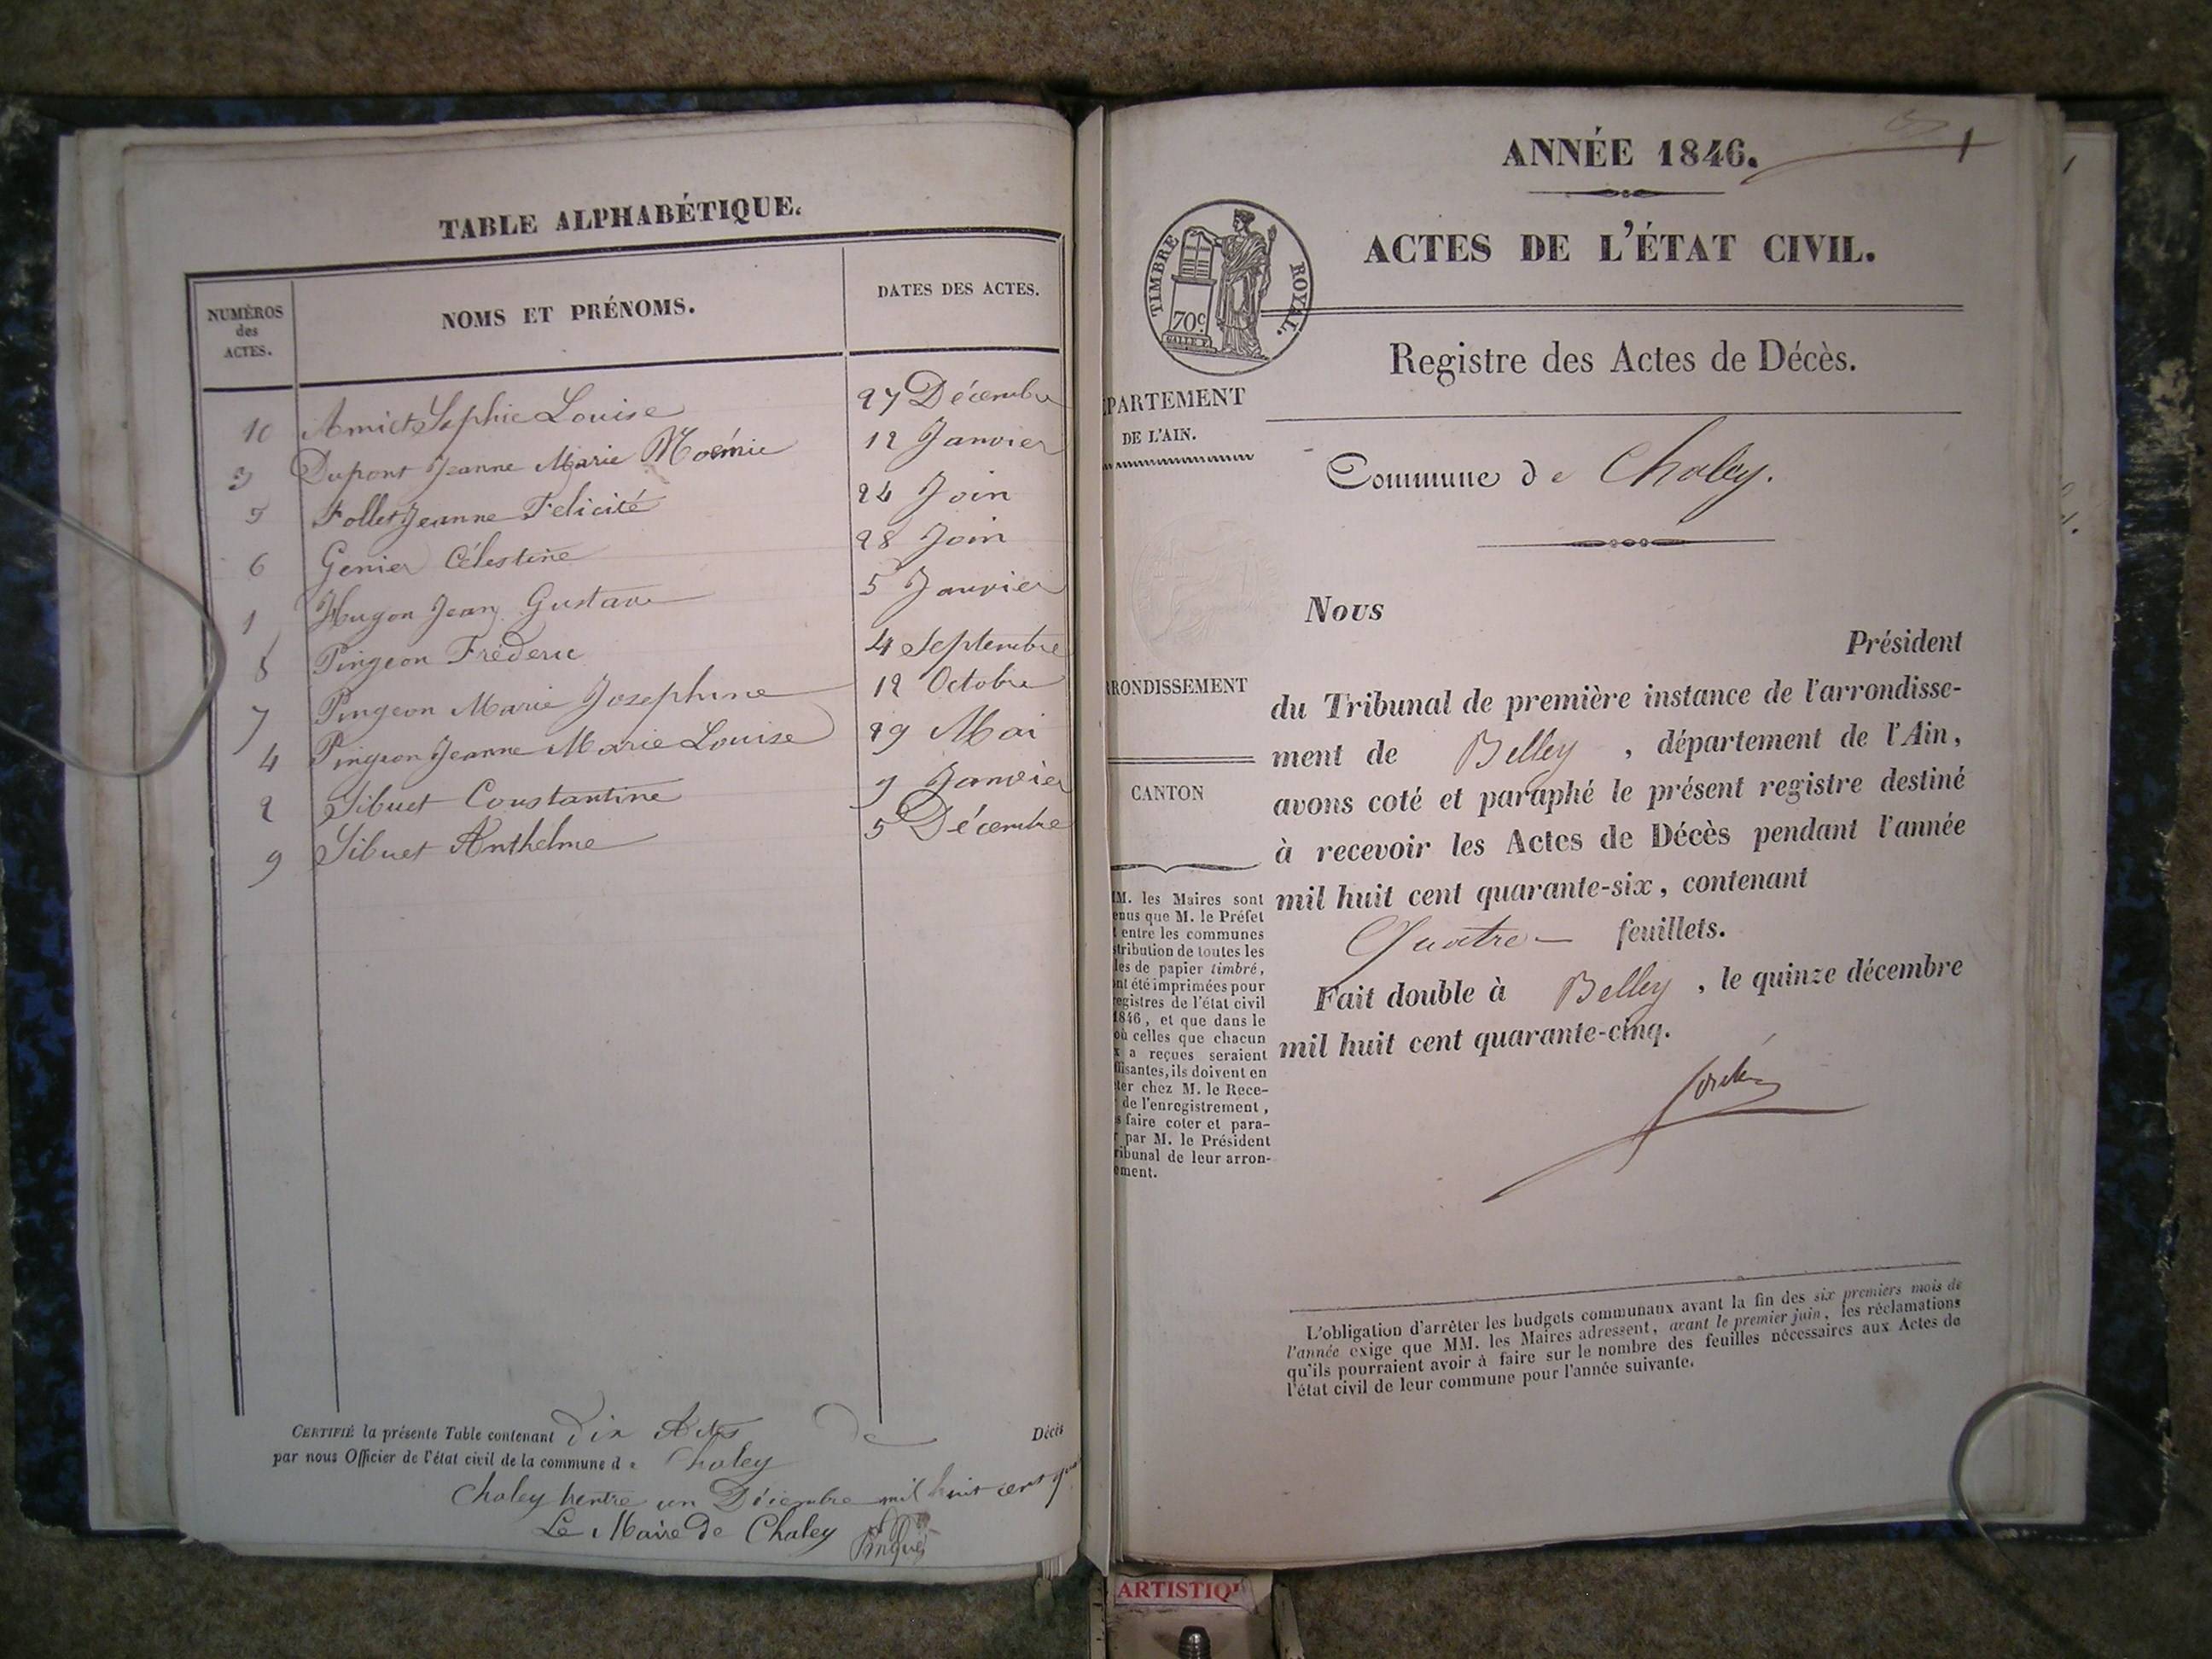 TABLE ALPHABÉTIQUE.
NUMÉROS
des
ACTES.
NOMS ET PRÉNOMS.
DATES DES ACTES.
10 Amiet Sophie Louise 27 Décembre
3 Dupont Jeanne Marie Noémie 12 Janvier
5 Follet Jeanne Felicité 24 Join
6 Genier Célestine 28 Join
1 Hugon Jean Gustave 5 Janvier
8 Pingeon Fréderic 4 Septembre
7 Pingeon Marie Josephine 12 Octobre
4 Pingeon Jeanne Marie Louise 29 Mai
2 Sibuet Constantine 9 Janvier
9 Sibuet Anthelme 5 Décembre
CERTIFIÉ la présente Table contenant dix Actes de Décès
par nous Officier de l'état civil de la commune de Chaley
Chaley trente un Décembre mil huit cent
Le Maire de Chaley
ANNÉE 1846. 1
ACTES DE L'ÉTAT CIVIL.
TIMBRE ROYAL.
70c
Registre des Actes de Décès.
PARTEMENT
DE L'AIN.
Commune de Chaley.
Nous
Président
RONDISSEMENT
du Tribunal de première instance de l'arrondisse-
ment de Belley, département de l'Ain,
CANTON
avons coté et paraphé le présent registre destiné
à recevoir les Actes de Décès pendant l'année
mil huit cent quarante-six, contenant
Quatre feuillets.
Fait double à Belley, le quinze décembre
mil huit cent quarante-cinq.
M. les Maires sont
enus que M. le Préfet
entre les communes
stribution de toutes les
les de papier timbré,
nt été imprimées pour
egistres de l'état civil
1846, et que dans le
où celles que chacun
x a reçues seraient
ffisantes, ils doivent en
ter chez M. le Rece-
de l'enregistrement,
s faire coter et para-
r par M. le Président
ribunal de leur arron-
ement.
L'obligation d'arrêter les budgets communaux avant la fin des six premiers mois de
l'année exige que MM. les Maires adressent, avant le premier juin, les réclamations
qu'ils pourraient avoir à faire sur le nombre des feuilles nécessaires aux Actes de
l'état civil de leur commune pour l'année suivante.
ARTISTIQ